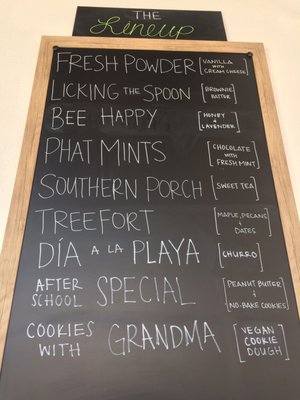 THE
Lineup
FRESH POWDER [VANILLA WITH CREAM CHEESE]
LICKING THE SPOON [BROWNIE BATTER]
BEE HAPPY [HONEY & LAVENDER]
PHAT MINTS [CHOCOLATE WITH FRESH MINT]
SOUTHERN PORCH [SWEET TEA]
TREEFORT [MAPLE, PECANS & DATES]
DÍA A LA PLAYA [CHURRO]
AFTER SCHOOL SPECIAL [PEANUT BUTTER & NO-BAKE COOKIES]
COOKIES WITH GRANDMA [VEGAN COOKIE DOUGH]